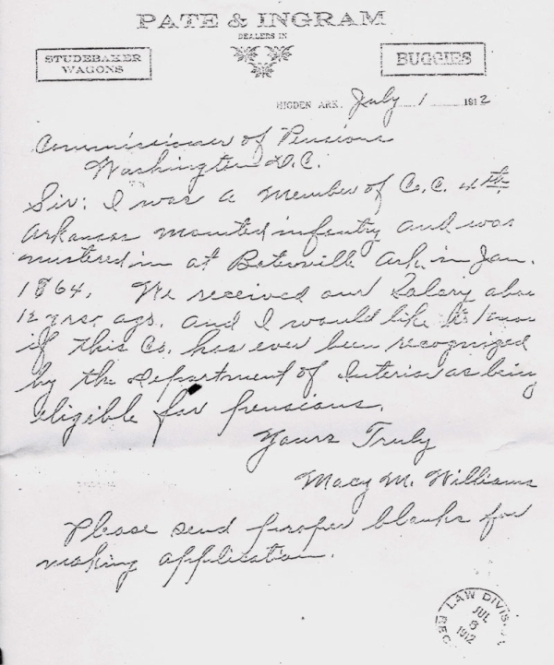 PATE & INGRAM
DEALERS IN
STUDEBAKER
WAGONS
BUGGIES
HIGDEN ARK. July 1 1912
Commissioner of Pensions
Washington D.C.
Sir: I was a Member of Co. C. 4th
Arkansas mounted infantry and was
mustered in at Batesville Ark. in Jan.
1864. We received our Salary abou
12 yrs. ago. and I would like to know
if this Co. has ever been recognized
by the Department of Interior as being
eligible for pensions.
Yours Truly
Macy M. Williams
Please send proper blanks for
making application.
LAW DIVIS
JUL
1912
REC